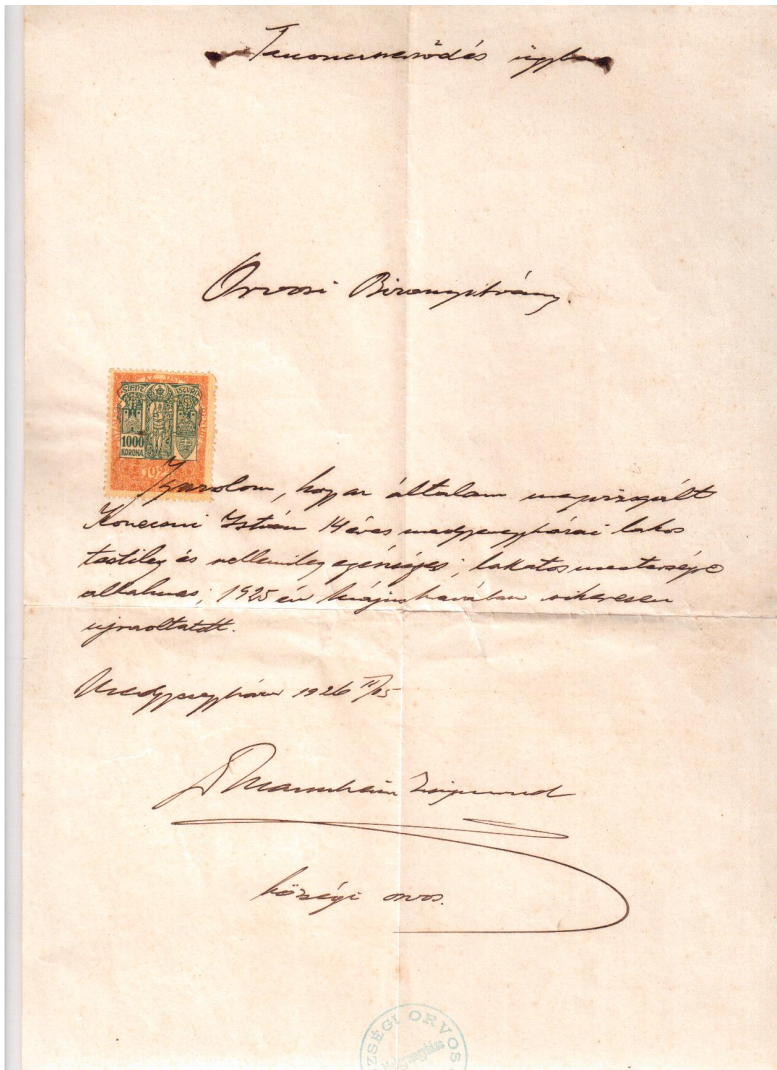 Tanoncszerződés ügyben
Orvosi Bizonyítvány.
1000
KORONA
Igazolom, hogy az általam megvizsgált
Konecsni István 14 éves medgyesegyházai lakos
testileg és szellemileg egészséges; lakatos mesterségre
alkalmas; 1925 év május havában sikeresen
ujraoltatott.
Medgyesegyháza 1926 II/15
Dr Mannheim Zsigmond
községi orvos.
ZSÉGI ORVOS